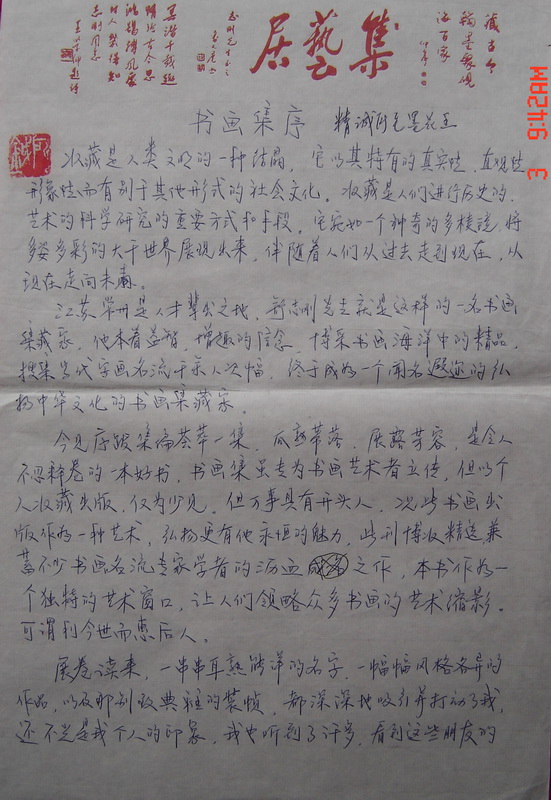 集藝居
藏古今
翰墨象硯
汲百家
书画集序 精诚所至墨花玉
收藏是人类文明的一种结晶，它以其特有的真实性、直观性
形象性而有别于其他形式的社会文化。收藏是人们进行历史的、
艺术的科学研究的重要方式和手段。它宛如一个神奇的多棱镜，将
多姿多彩的大千世界展现出来，伴随着人们从过去走到现在，从
现在走向未来。
江苏常州是人才辈出之地，志刚先生就是这样的一名书画
集藏家，他本着益智、增趣的信念，博采书画海洋中的精品，
搜集当代字画名流千余人次幅，终于成为一个闻名遐迩的弘
扬中华文化的书画集藏家。
今见序跋集编荟萃一集，瓜熟蒂落，展露芽容，是令人
不忍释卷的一本好书，书画集虽专为书画艺术者立传，但以个
人收藏出版，仅为少见，但万事具有开头人，况此书画出
版作为一种艺术，弘扬更有他永恒的魅力，此刊博收精选兼
蓄不少书画名流专家学者的沥血之作，本书作为一
个独特的艺术窗口，让人们领略众多书画的艺术缩影。
可谓利今世而惠后人。
展卷读来，一串串耳熟能详的名字，一幅幅风格各异的
作品，以及那别致典雅的装帧，都深深地吸引并打动了我，
还不光是我个人的印象，我也听到了许多，看到这些朋友的
3 9:42AM